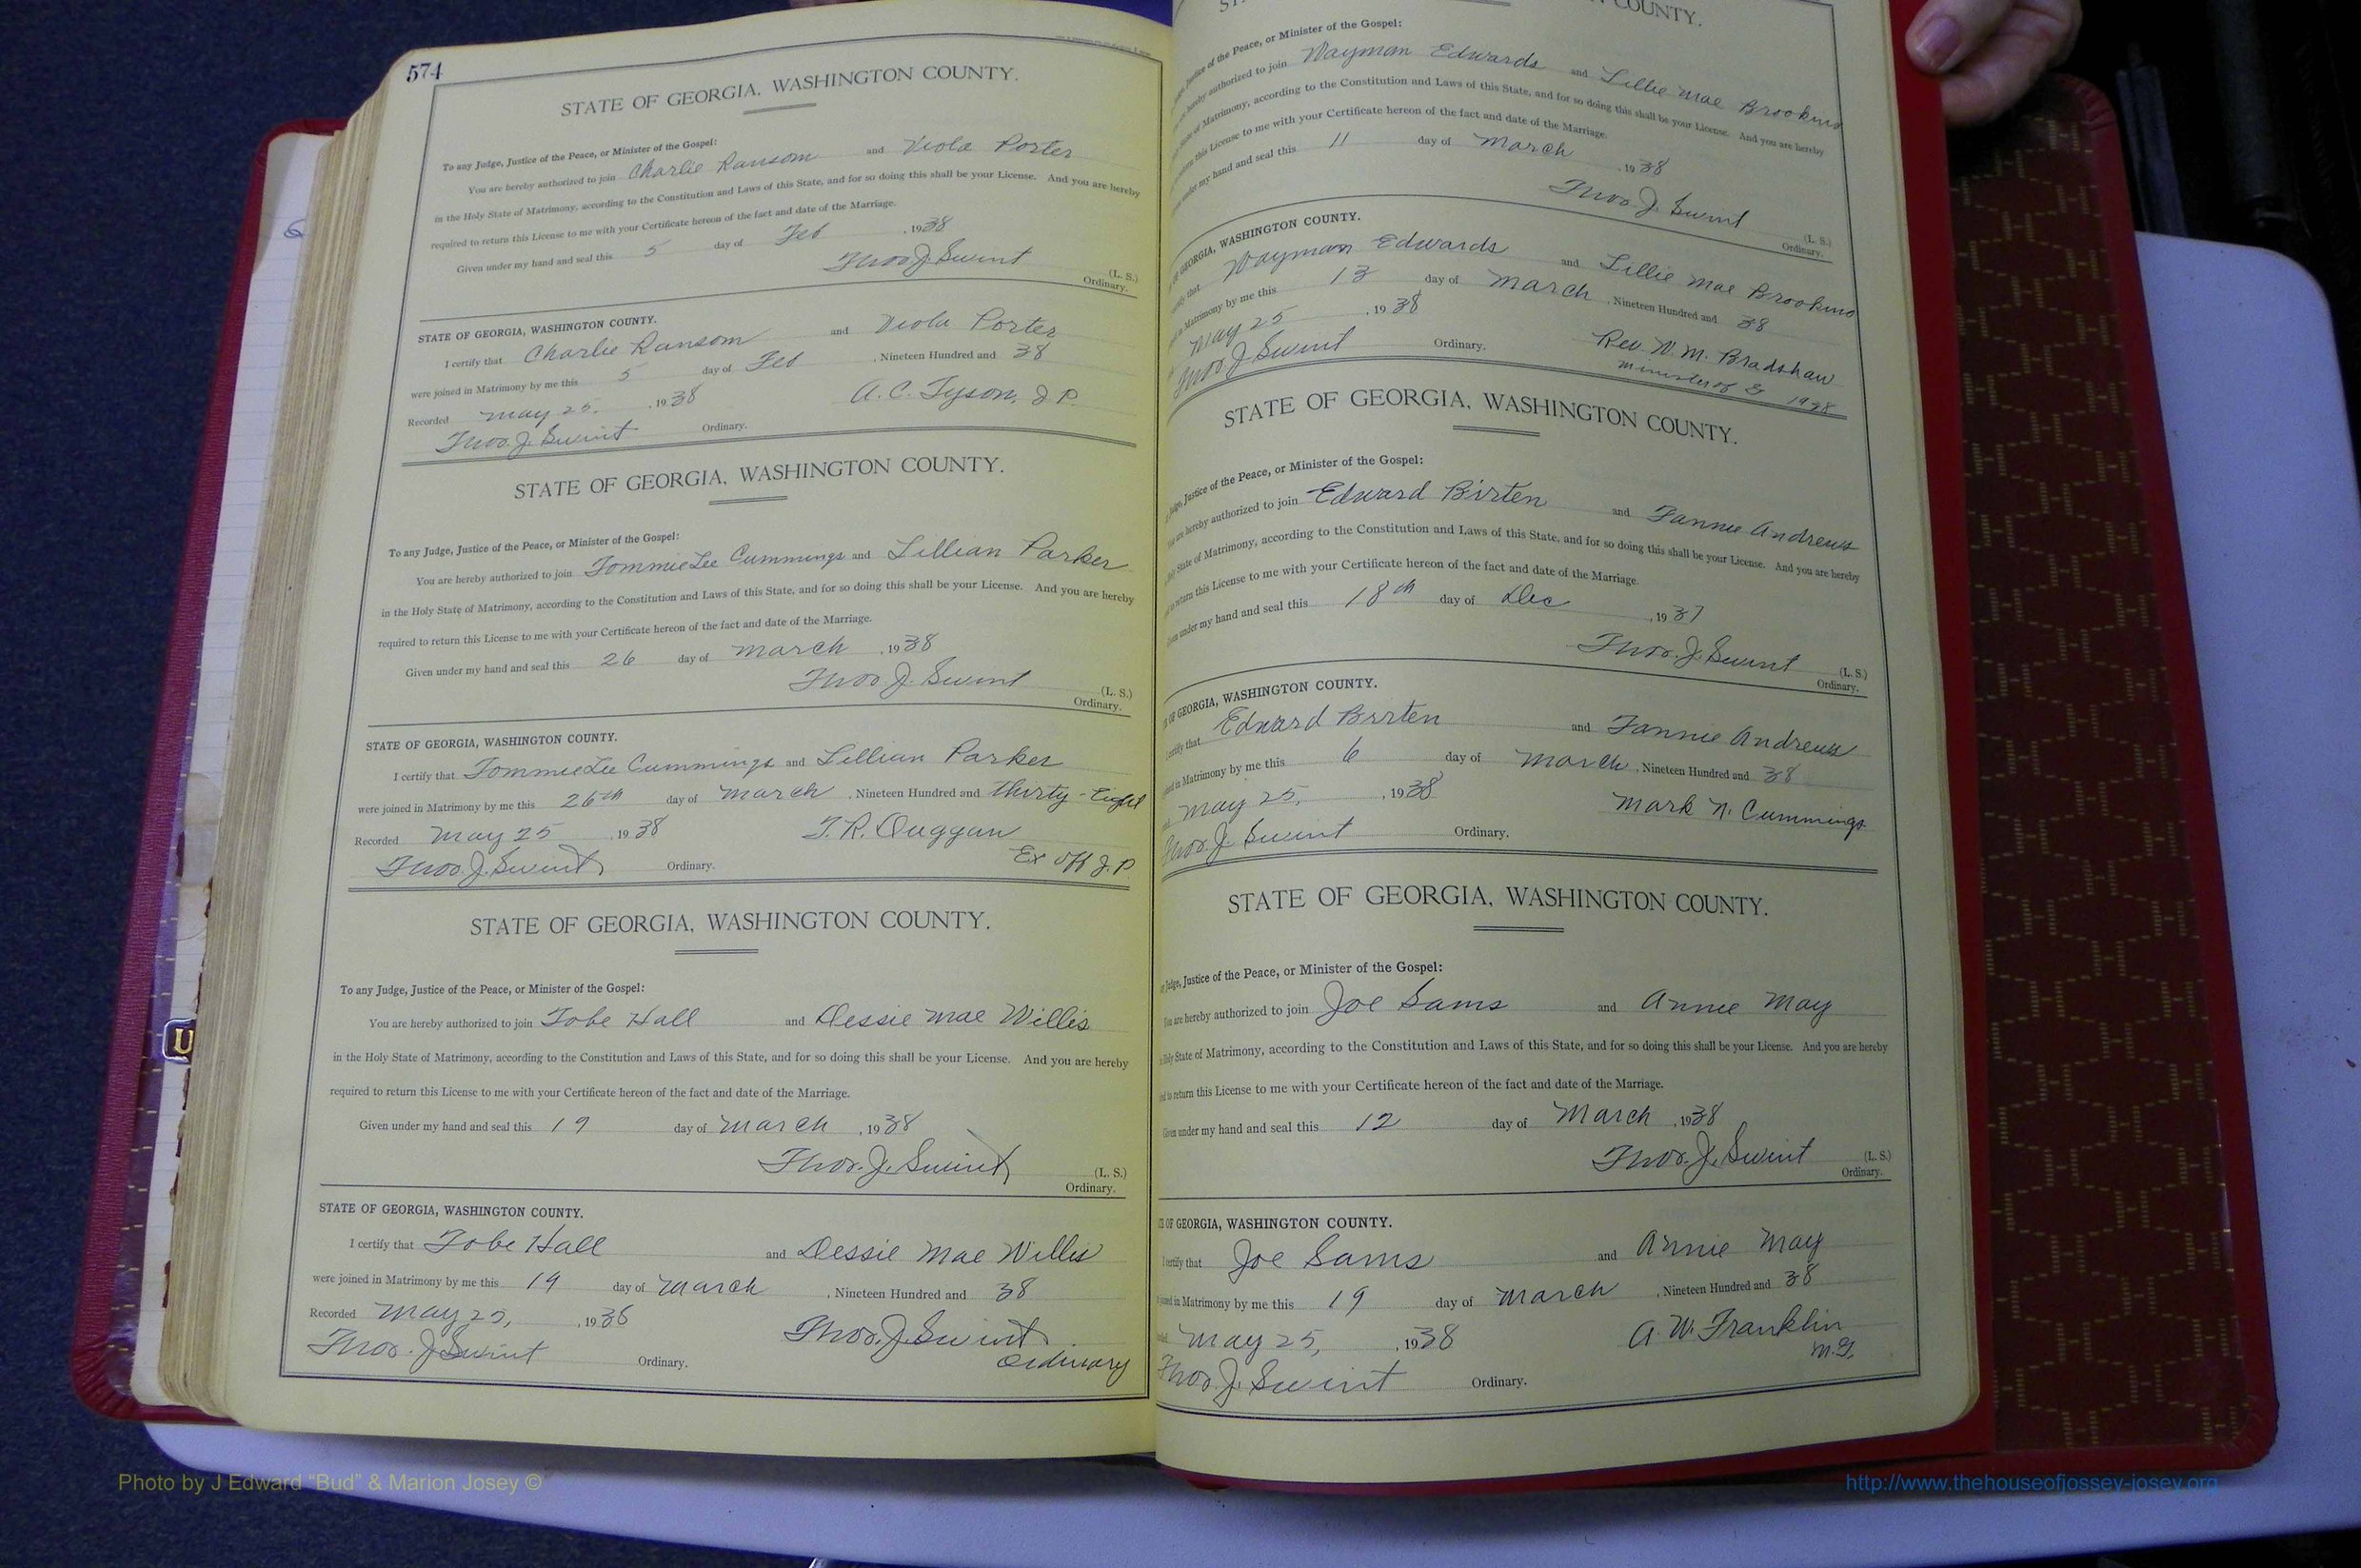 574
STATE OF GEORGIA, WASHINGTON COUNTY.
To any Judge, Justice of the Peace, or Minister of the Gospel:
You are hereby authorized to join Charlie Ransom and Viola Porter
in the Holy State of Matrimony, according to the Constitution and Laws of this State, and for so doing this shall be your License. And you are hereby
required to return this License to me with your Certificate hereon of the fact and date of the Marriage.
Given under my hand and seal this 5 day of Feb , 1938
Thos. J. Swint (L. S.)
Ordinary.
STATE OF GEORGIA, WASHINGTON COUNTY.
I certify that Charlie Ransom and Viola Porter
were joined in Matrimony by me this 5 day of Feb , Nineteen Hundred and 38
Recorded May 25, , 1938 A. C. Tyson, J P.
Thos. J. Swint Ordinary.
STATE OF GEORGIA, WASHINGTON COUNTY.
To any Judge, Justice of the Peace, or Minister of the Gospel:
You are hereby authorized to join Tommie Lee Cummings and Lillian Parker
in the Holy State of Matrimony, according to the Constitution and Laws of this State, and for so doing this shall be your License. And you are hereby
required to return this License to me with your Certificate hereon of the fact and date of the Marriage.
Given under my hand and seal this 26 day of March , 1938
Thos. J. Swint (L. S.)
Ordinary.
STATE OF GEORGIA, WASHINGTON COUNTY.
I certify that Tommie Lee Cummings and Lillian Parker
were joined in Matrimony by me this 26th day of March , Nineteen Hundred and Thirty-Eight
Recorded May 25 , 1938 T. R. Duggan
Thos. J. Swint Ordinary. Ex off J. P.
STATE OF GEORGIA, WASHINGTON COUNTY.
To any Judge, Justice of the Peace, or Minister of the Gospel:
You are hereby authorized to join Tobe Hall and Dessie Mae Willis
in the Holy State of Matrimony, according to the Constitution and Laws of this State, and for so doing this shall be your License. And you are hereby
required to return this License to me with your Certificate hereon of the fact and date of the Marriage.
Given under my hand and seal this 19 day of March , 1938
Thos. J. Swint (L. S.)
Ordinary.
STATE OF GEORGIA, WASHINGTON COUNTY.
I certify that Tobe Hall and Dessie Mae Willis
were joined in Matrimony by me this 19 day of March , Nineteen Hundred and 38
Recorded May 25, , 1938 Thos. J. Swint
Thos. J. Swint Ordinary. Ordinary
COUNTY.
Justice of the Peace, or Minister of the Gospel:
hereby authorized to join Wayman Edwards and Lillie Mae Brookins
State of Matrimony, according to the Constitution and Laws of this State, and for so doing this shall be your License. And you are hereby
return this License to me with your Certificate hereon of the fact and date of the Marriage.
under my hand and seal this 11 day of March , 1938
Thos. J. Swint (L. S.)
Ordinary.
OF GEORGIA, WASHINGTON COUNTY.
that Wayman Edwards and Lillie Mae Brookins
in Matrimony by me this 13 day of March , Nineteen Hundred and 38
May 25 , 1938 Rev. W. M. Bradshaw
Thos. J. Swint Ordinary. Minister of G 1938
STATE OF GEORGIA, WASHINGTON COUNTY.
Judge, Justice of the Peace, or Minister of the Gospel:
are hereby authorized to join Edward Birten and Fannie Andrews
State of Matrimony, according to the Constitution and Laws of this State, and for so doing this shall be your License. And you are hereby
to return this License to me with your Certificate hereon of the fact and date of the Marriage.
under my hand and seal this 18th day of Dec , 1937
Thos. J. Swint (L. S.)
Ordinary.
OF GEORGIA, WASHINGTON COUNTY.
certify that Edward Birten and Fannie Andrews
in Matrimony by me this 6 day of March , Nineteen Hundred and 38
May 25, , 1938 Mark N. Cummings
Thos. J. Swint Ordinary.
STATE OF GEORGIA, WASHINGTON COUNTY.
Judge, Justice of the Peace, or Minister of the Gospel:
You are hereby authorized to join Joe Sams and Annie May
Holy State of Matrimony, according to the Constitution and Laws of this State, and for so doing this shall be your License. And you are hereby
to return this License to me with your Certificate hereon of the fact and date of the Marriage.
Given under my hand and seal this 12 day of March , 1938
Thos. J. Swint (L. S.)
Ordinary.
OF GEORGIA, WASHINGTON COUNTY.
I certify that Joe Sams and Annie May
joined in Matrimony by me this 19 day of March , Nineteen Hundred and 38
May 25, , 1938 A. W. Franklin
M. G.
Thos. J. Swint Ordinary.
Photo by J Edward “Bud” & Marion Josey ©
http://www.thehouseofjossey-josey.org